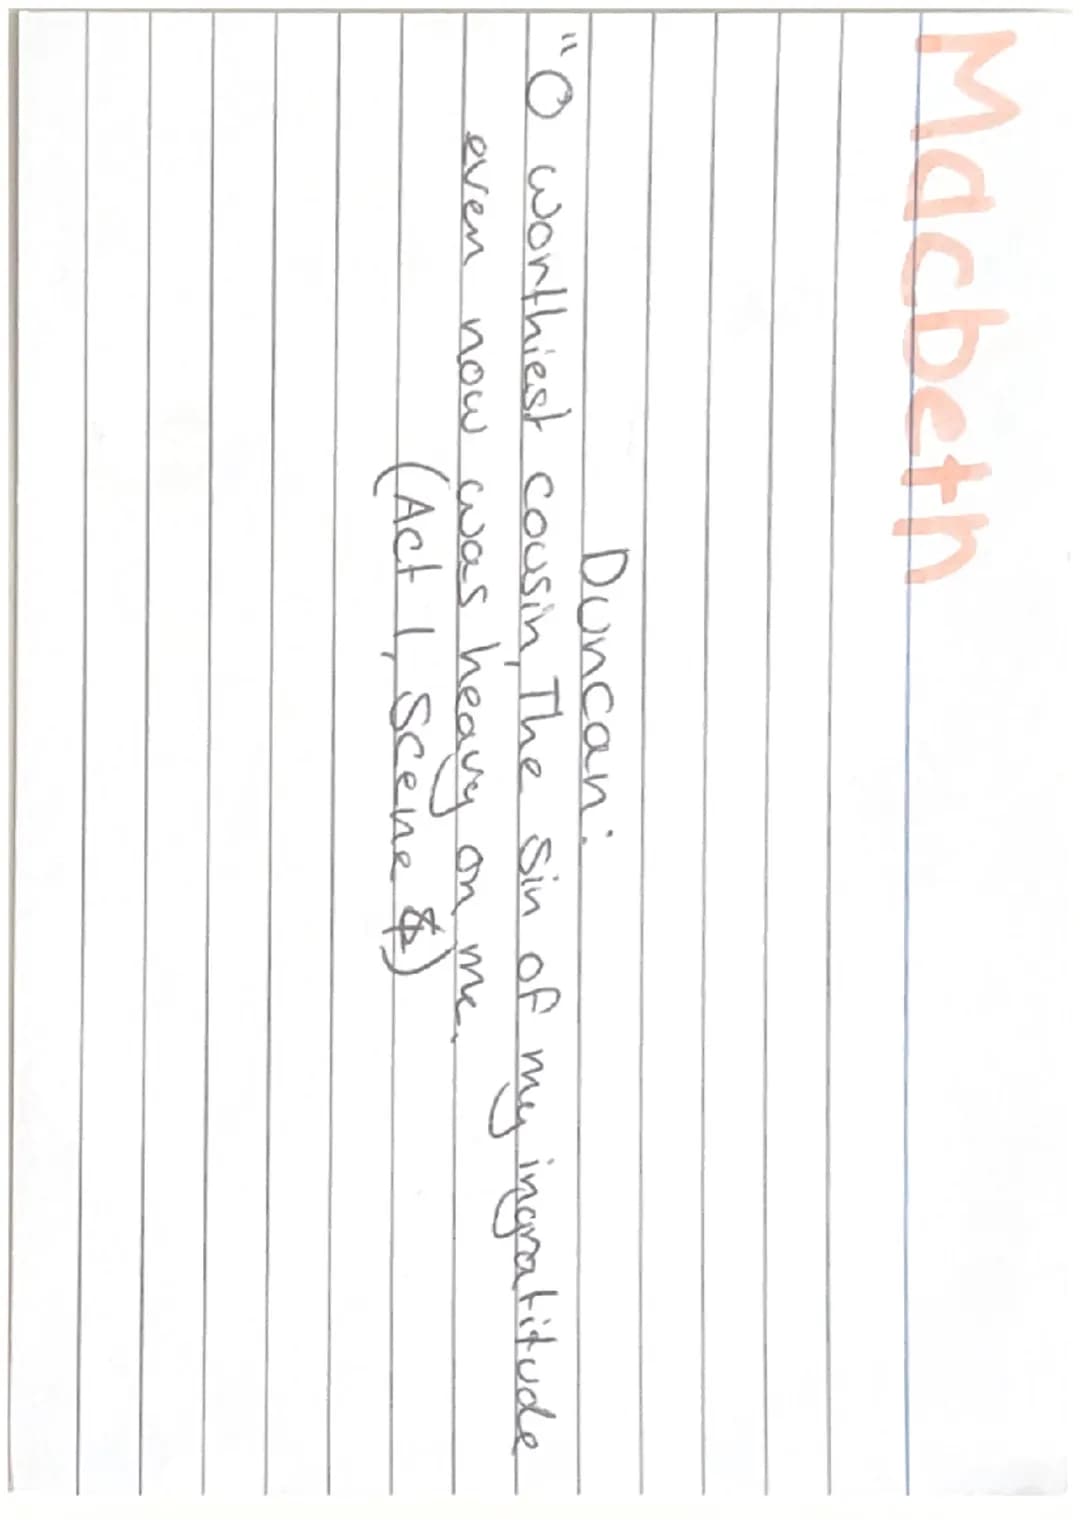 Macbeth
Duncan:
"O worthiest cousin, The Sin of my ingratitude
even now was heavy on me.
(Act 1, Scene 4)